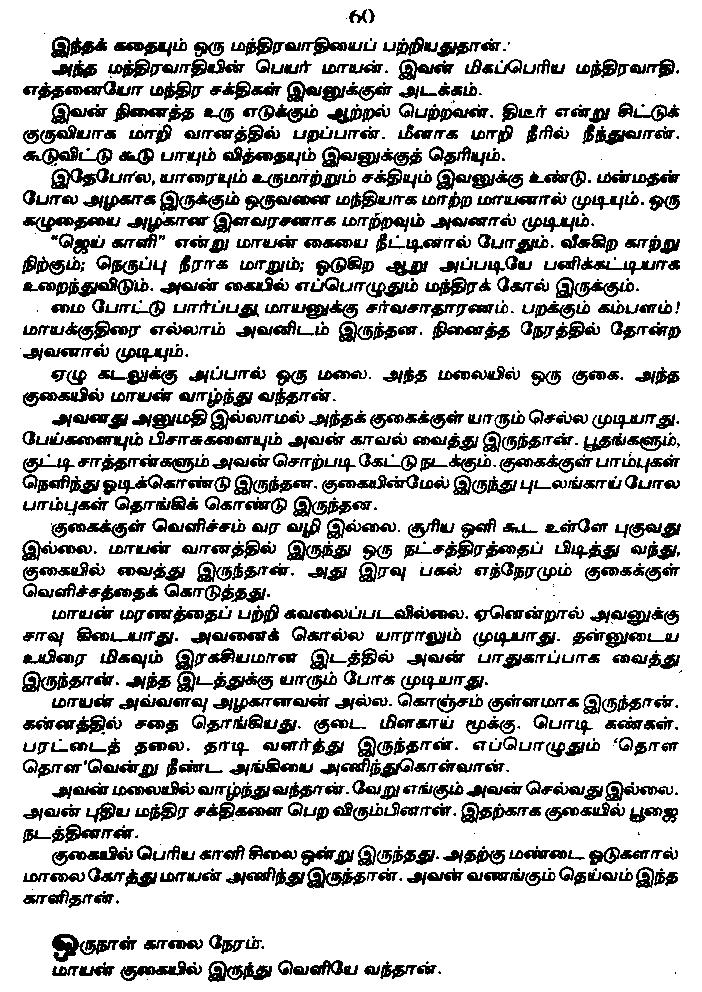 60
இந்தக் கதையும் ஒரு மந்திரவாதியைப் பற்றியதுதான்.
அந்த மந்திரவாதியின் பெயர் மாயன். இவன் மிகப்பெரிய மந்திரவாதி.
எத்தனையோ மந்திர சக்திகள் இவனுக்குள் அடக்கம்.
இவன் நினைத்த உரு எடுக்கும் ஆற்றல் பெற்றவன். திடீர் என்று சிட்டுக்
குருவியாக மாறி வானத்தில் பறப்பான். மீனாக மாறி நீரில் நீந்துவான்.
கூடுவிட்டு கூடு பாயும் வித்தையும் இவனுக்குத் தெரியும்.
இதேபோல, யாரையும் உருமாற்றும் சக்தியும் இவனுக்கு உண்டு. மன்மதன்
போல அழகாக இருக்கும் ஒருவனை மந்தியாக மாற்ற மாயனால் முடியும். ஒரு
கழுதையை அழகான இளவரசனாக மாற்றவும் அவனால் முடியும்.
"ஜெய் காளி" என்று மாயன் கையை நீட்டினால் போதும். வீசுகிற காற்று
நிற்கும்; நெருப்பு நீராக மாறும்; ஓடுகிற ஆறு அப்படியே பனிக்கட்டியாக
உறைந்துவிடும். அவன் கையில் எப்பொழுதும் மந்திரக் கோல் இருக்கும்.
மை போட்டு பார்ப்பது மாயனுக்கு சர்வசாதாரணம். பறக்கும் கம்பளம்!
மாயக்குதிரை எல்லாம் அவனிடம் இருந்தன. நினைத்த நேரத்தில் தோன்ற
அவனால் முடியும்.
ஏழு கடலுக்கு அப்பால் ஒரு மலை. அந்த மலையில் ஒரு குகை. அந்த
குகையில் மாயன் வாழ்ந்து வந்தான்.
அவனது அனுமதி இல்லாமல் அந்தக் குகைக்குள் யாரும் செல்ல முடியாது.
பேய்களையும் பிசாசுகளையும் அவன் காவல் வைத்து இருந்தான். பூதங்களும்,
குட்டி சாத்தான்களும் அவன் சொற்படி கேட்டு நடக்கும். குகைக்குள் பாம்புகள்
நெளிந்து ஓடிக்கொண்டு இருந்தன. குகையின்மேல் இருந்து புடலங்காய் போல
பாம்புகள் தொங்கிக் கொண்டு இருந்தன.
குகைக்குள் வெளிச்சம் வர வழி இல்லை. சூரிய ஒளி கூட உள்ளே புகுவது
இல்லை. மாயன் வானத்தில் இருந்து ஒரு நட்சத்திரத்தைப் பிடித்து வந்து,
குகையில் வைத்து இருந்தான். அது இரவு பகல் எந்நேரமும் குகைக்குள்
வெளிச்சத்தைக் கொடுத்தது.
மாயன் மரணத்தைப் பற்றி கவலைப்படவில்லை. ஏனென்றால் அவனுக்கு
சாவு கிடையாது. அவனைக் கொல்ல யாராலும் முடியாது. தன்னுடைய
உயிரை மிகவும் இரகசியமான இடத்தில் அவன் பாதுகாப்பாக வைத்து
இருந்தான். அந்த இடத்துக்கு யாரும் போக முடியாது.
மாயன் அவ்வளவு அழகானவன் அல்ல. கொஞ்சம் குள்ளமாக இருந்தான்.
கன்னத்தில் சதை தொங்கியது. குடை மிளகாய் மூக்கு. பொடி கண்கள்.
பரட்டைத் தலை. தாடி வளர்த்து இருந்தான். எப்பொழுதும் 'தொள
தொள'வென்று நீண்ட அங்கியை அணிந்துகொள்வான்.
அவன் மலையில் வாழ்ந்து வந்தான். வேறு எங்கும் அவன் செல்வது இல்லை.
அவன் புதிய மந்திர சக்திகளை பெற விரும்பினான். இதற்காக குகையில் பூஜை
நடத்தினான்.
குகையில் பெரிய காளி சிலை ஒன்று இருந்தது. அதற்கு மண்டை ஓடுகளால்
மாலை கோத்து மாயன் அணிந்து இருந்தான். அவன் வணங்கும் தெய்வம் இந்த
காளிதான்.
ஒருநாள் காலை நேரம்.
மாயன் குகையில் இருந்து வெளியே வந்தான்.